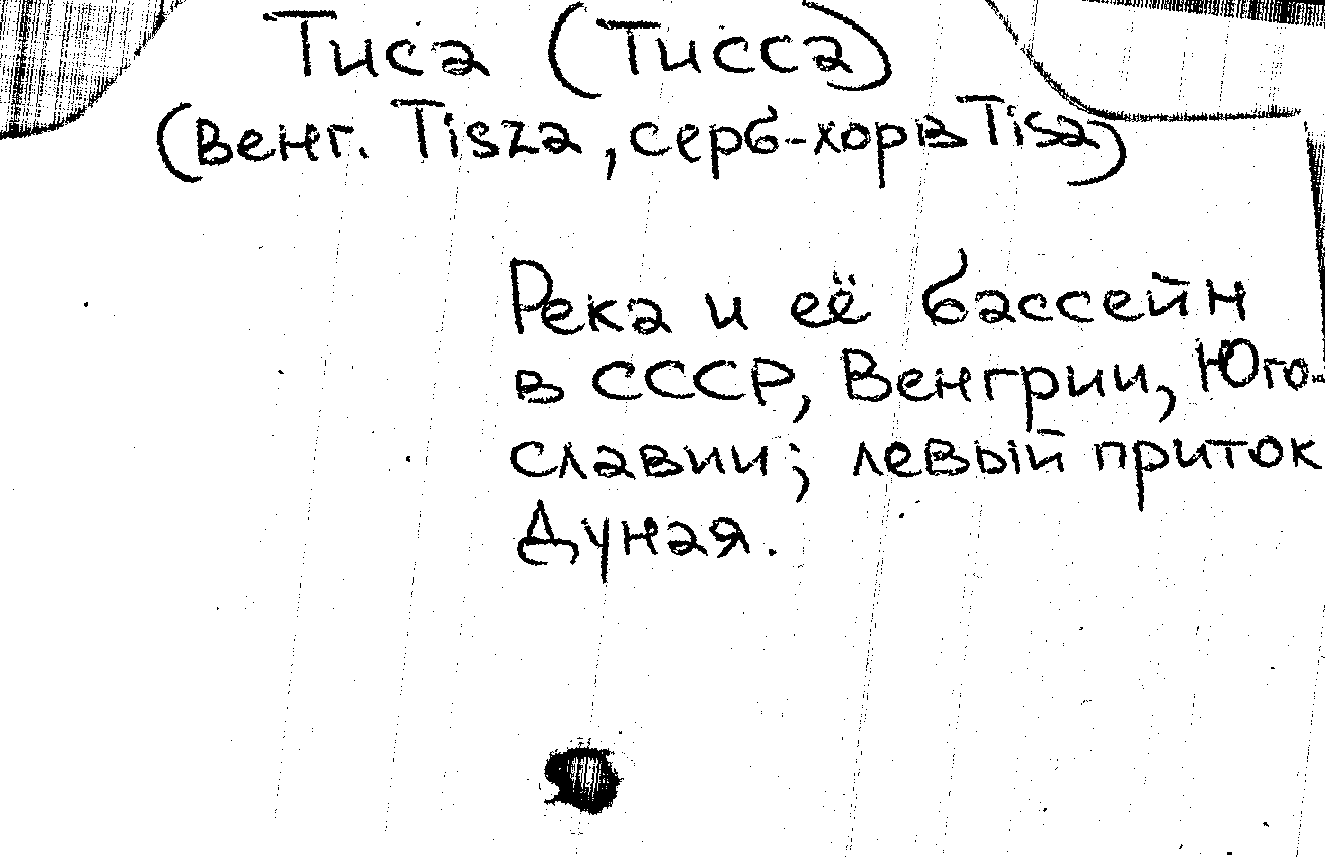 Тиса (Тисса)
(венг. Tisza, серб-хорв Tisa)
Река и её бассейн
в СССР, Венгрии, Юго-
славии; левый приток
Дуная.